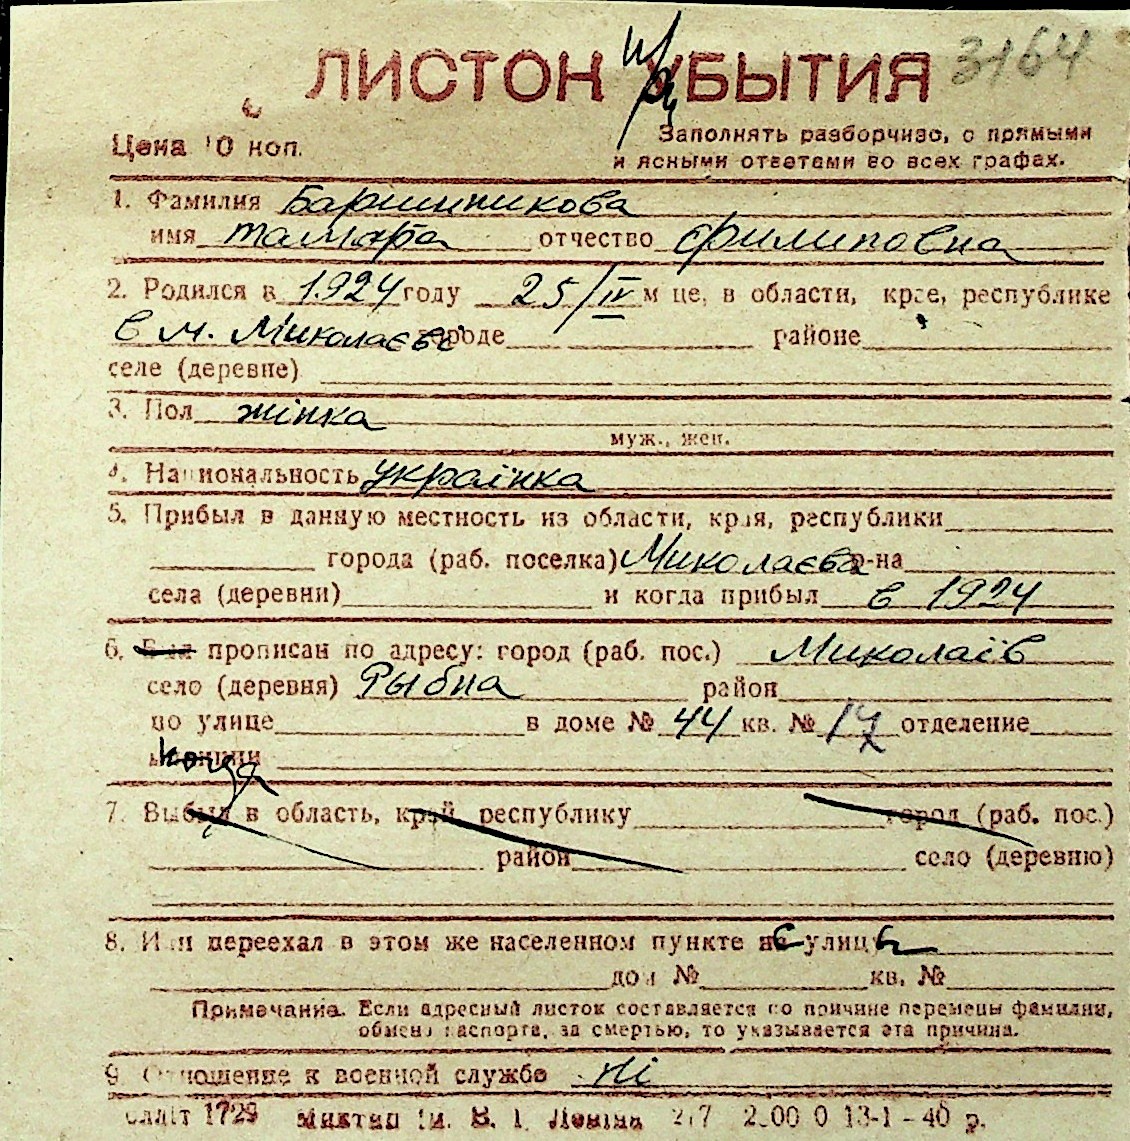 ЛИСТОК УБЫТИЯ 3164
Цена 10 коп.
Заполнять разборчиво, с прямыми
и ясными ответами во всех графах.
1. Фамилия Баришникова
имя тамара отчество Филиповна
2. Родился в 1924 году 25/IV м це, в области, крае, республике
в м. Миколаєві городе районе
селе (деревне)
3. Пол жінка
муж., жен.
4. Национальность українка
5. Прибыл в данную местность из области, края, республики
города (раб. поселка) Миколаєва р-на
села (деревни) и когда прибыл в 1924
6. Был прописан по адресу: город (раб. пос.) Миколаїв
село (деревня) Рыбна район
по улице в доме № 44 кв. № 17 отделение
милиции
7. Выбыл в область, край, республику город (раб. пос.)
район село (деревню)
8. Или переехал в этом же населенном пункте с улицы
дом № кв. №
Примечание. Если адресный листок составляется по причине перемены фамилии,
обмена паспорта, за смертью, то указывается эта причина.
9. Отношение к военной службе ні
1729 ім. В. І. Леніна 13-1-40 р.